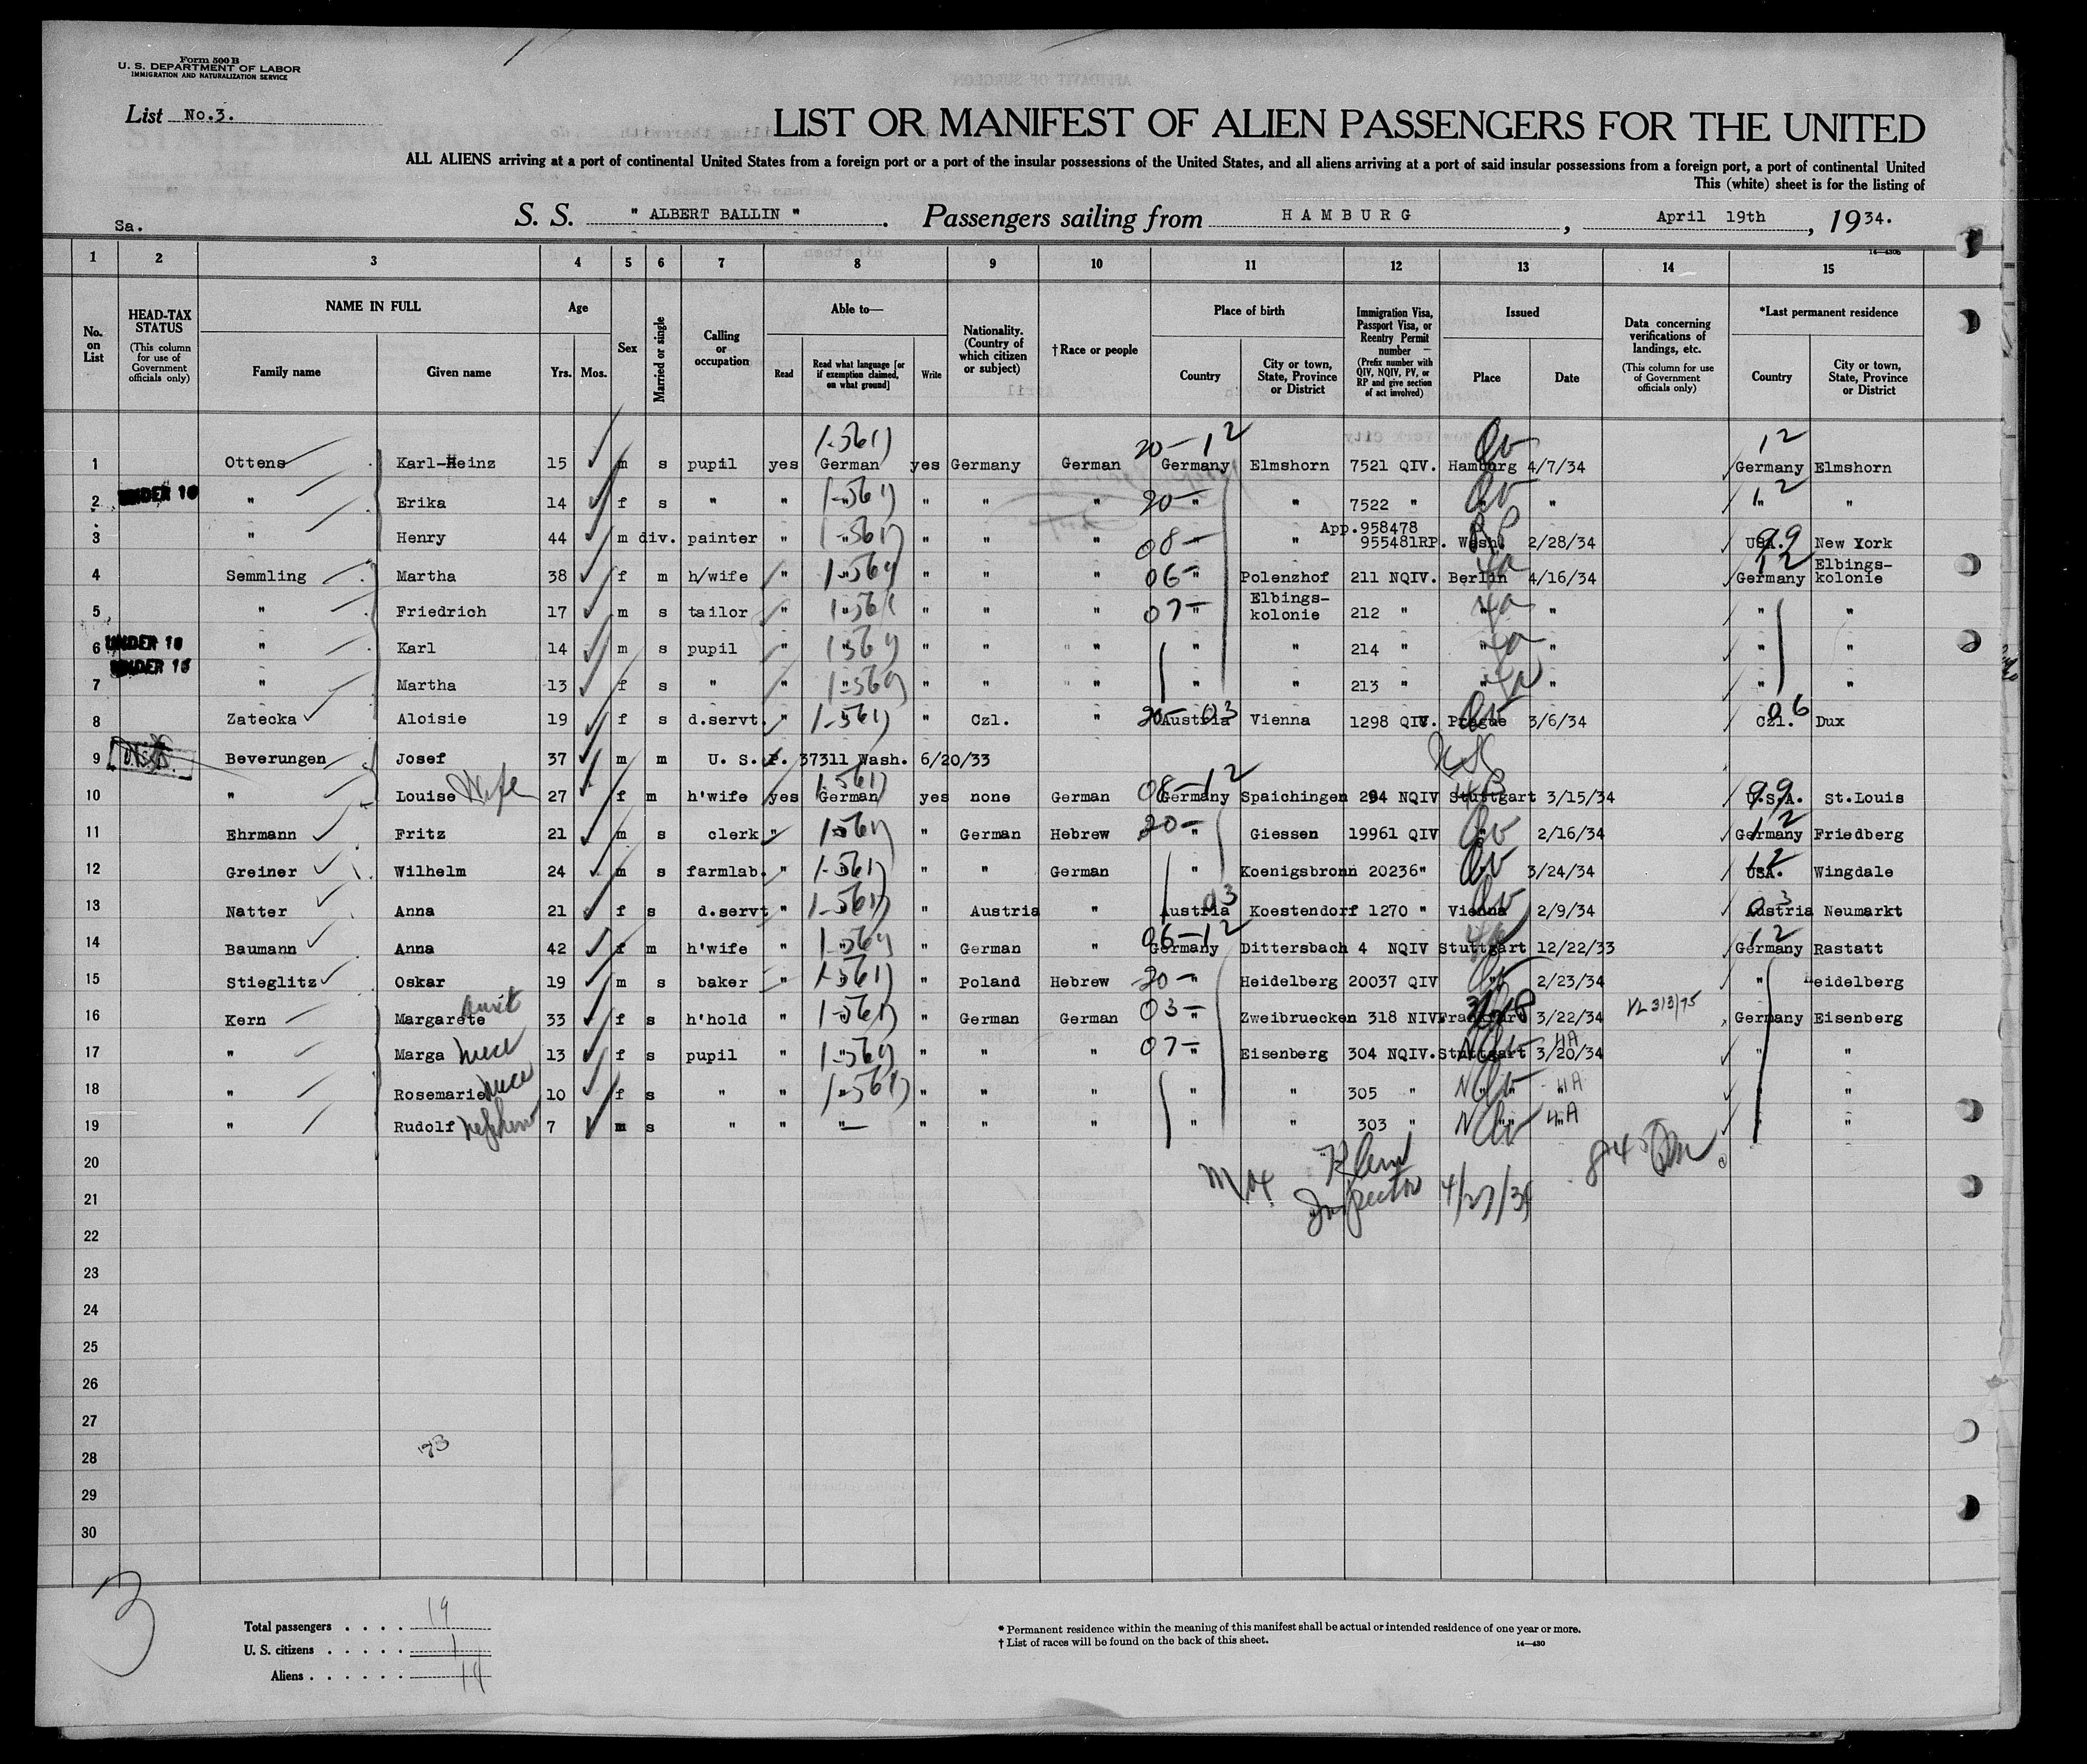 Form 500 B
U. S. DEPARTMENT OF LABOR
IMMIGRATION AND NATURALIZATION SERVICE
List No.3.
LIST OR MANIFEST OF ALIEN PASSENGERS FOR THE UNITED
ALL ALIENS arriving at a port of continental United States from a foreign port or a port of the insular possessions of the United States, and all aliens arriving at a port of said insular possessions from a foreign port, a port of continental United
This (white) sheet is for the listing of
Sa. S. S. " ALBERT BALLIN ". Passengers sailing from HAMBURG, April 19th, 1934.
14—430b
1 2 3 4 5 6 7 8 9 10 11 12 13 14 15
No. on List
HEAD-TAX STATUS (This column for use of Government officials only)
NAME IN FULL
Family name Given name
Age
Yrs. Mos.
Sex
Married or single
Calling or occupation
Able to—
Read Read what language [or if exemption claimed, on what ground] Write
Nationality. (Country of which citizen or subject)
† Race or people
Place of birth
Country City or town, State, Province or District
Immigration Visa, Passport Visa, or Reentry Permit number (Prefix number with QIV, NQIV, PV, or RP and give section of act involved)
Issued
Place Date
Data concerning verifications of landings, etc. (This column for use of Government officials only)
*Last permanent residence
Country City or town, State, Province or District
1 Ottens Karl-Heinz 15 m s pupil yes German yes Germany German Germany Elmshorn 7521 QIV. Hamburg 4/7/34 Germany Elmshorn
2 UNDER 16 " Erika 14 f s " " " " " " " " 7522 " " " " "
3 " Henry 44 m div. painter " " " " " " " App.958478 955481RP. Wash. 2/28/34 USA. New York
4 Semmling Martha 38 f m h/wife " " " " " " Polenzhof 211 NQIV. Berlin 4/16/34 Germany Elbings-kolonie
5 " Friedrich 17 m s tailor " " " " " " Elbings-kolonie 212 " " " " "
6 UNDER 16 " Karl 14 m s pupil " " " " " " " 214 " " " " "
7 UNDER 16 " Martha 13 f s " " " " " " " " 213 " " " " "
8 Zatecka Aloisie 19 f s d.servt. " " " Czl. " Austria Vienna 1298 QIV. Prague 3/6/34 Czl. Dux
9 Beverungen Josef 37 m m U. S. P. 37311 Wash. 6/20/33
10 " Louise Wife 27 f m h'wife yes German yes none German Germany Spaichingen 294 NQIV Stuttgart 3/15/34 U.S.A. St.Louis
11 Ehrmann Fritz 21 m s clerk " " " German Hebrew " Giessen 19961 QIV " 2/16/34 Germany Friedberg
12 Greiner Wilhelm 24 m s farmlab. " " " " German " Koenigsbronn 20236 " " 3/24/34 USA. Wingdale
13 Natter Anna 21 f s d.servt " " " Austria " Austria Koestendorf 1270 " Vienna 2/9/34 Austria Neumarkt
14 Baumann Anna 42 f m h'wife " " " German " Germany Dittersbach 4 NQIV Stuttgart 12/22/33 Germany Rastatt
15 Stieglitz Oskar 19 m s baker " " " Poland Hebrew " Heidelberg 20037 QIV " 2/23/34 " Heidelberg
16 Kern Margarete aunt 33 f s h'hold " " " German German " Zweibruecken 318 NIV Frankfurt 3/22/34 VL 3/3/75 Germany Eisenberg
17 " Marga niece 13 f s pupil " " " " " " Eisenberg 304 NQIV. Stuttgart 3/20/34 4A " "
18 " Rosemarie niece 10 f s " " " " " " " " 305 " " " 4A " "
19 " Rudolf nephew 7 m s " " "— " " " " " 303 " " " 4A " "
20
21
22
23
24
25
26
27
28
29
30
Inspector 4/27/34
3
Total passengers . . . . 19
U. S. citizens . . . . . 1
Aliens . . . . . .
* Permanent residence within the meaning of this manifest shall be actual or intended residence of one year or more.
† List of races will be found on the back of this sheet.
14—430